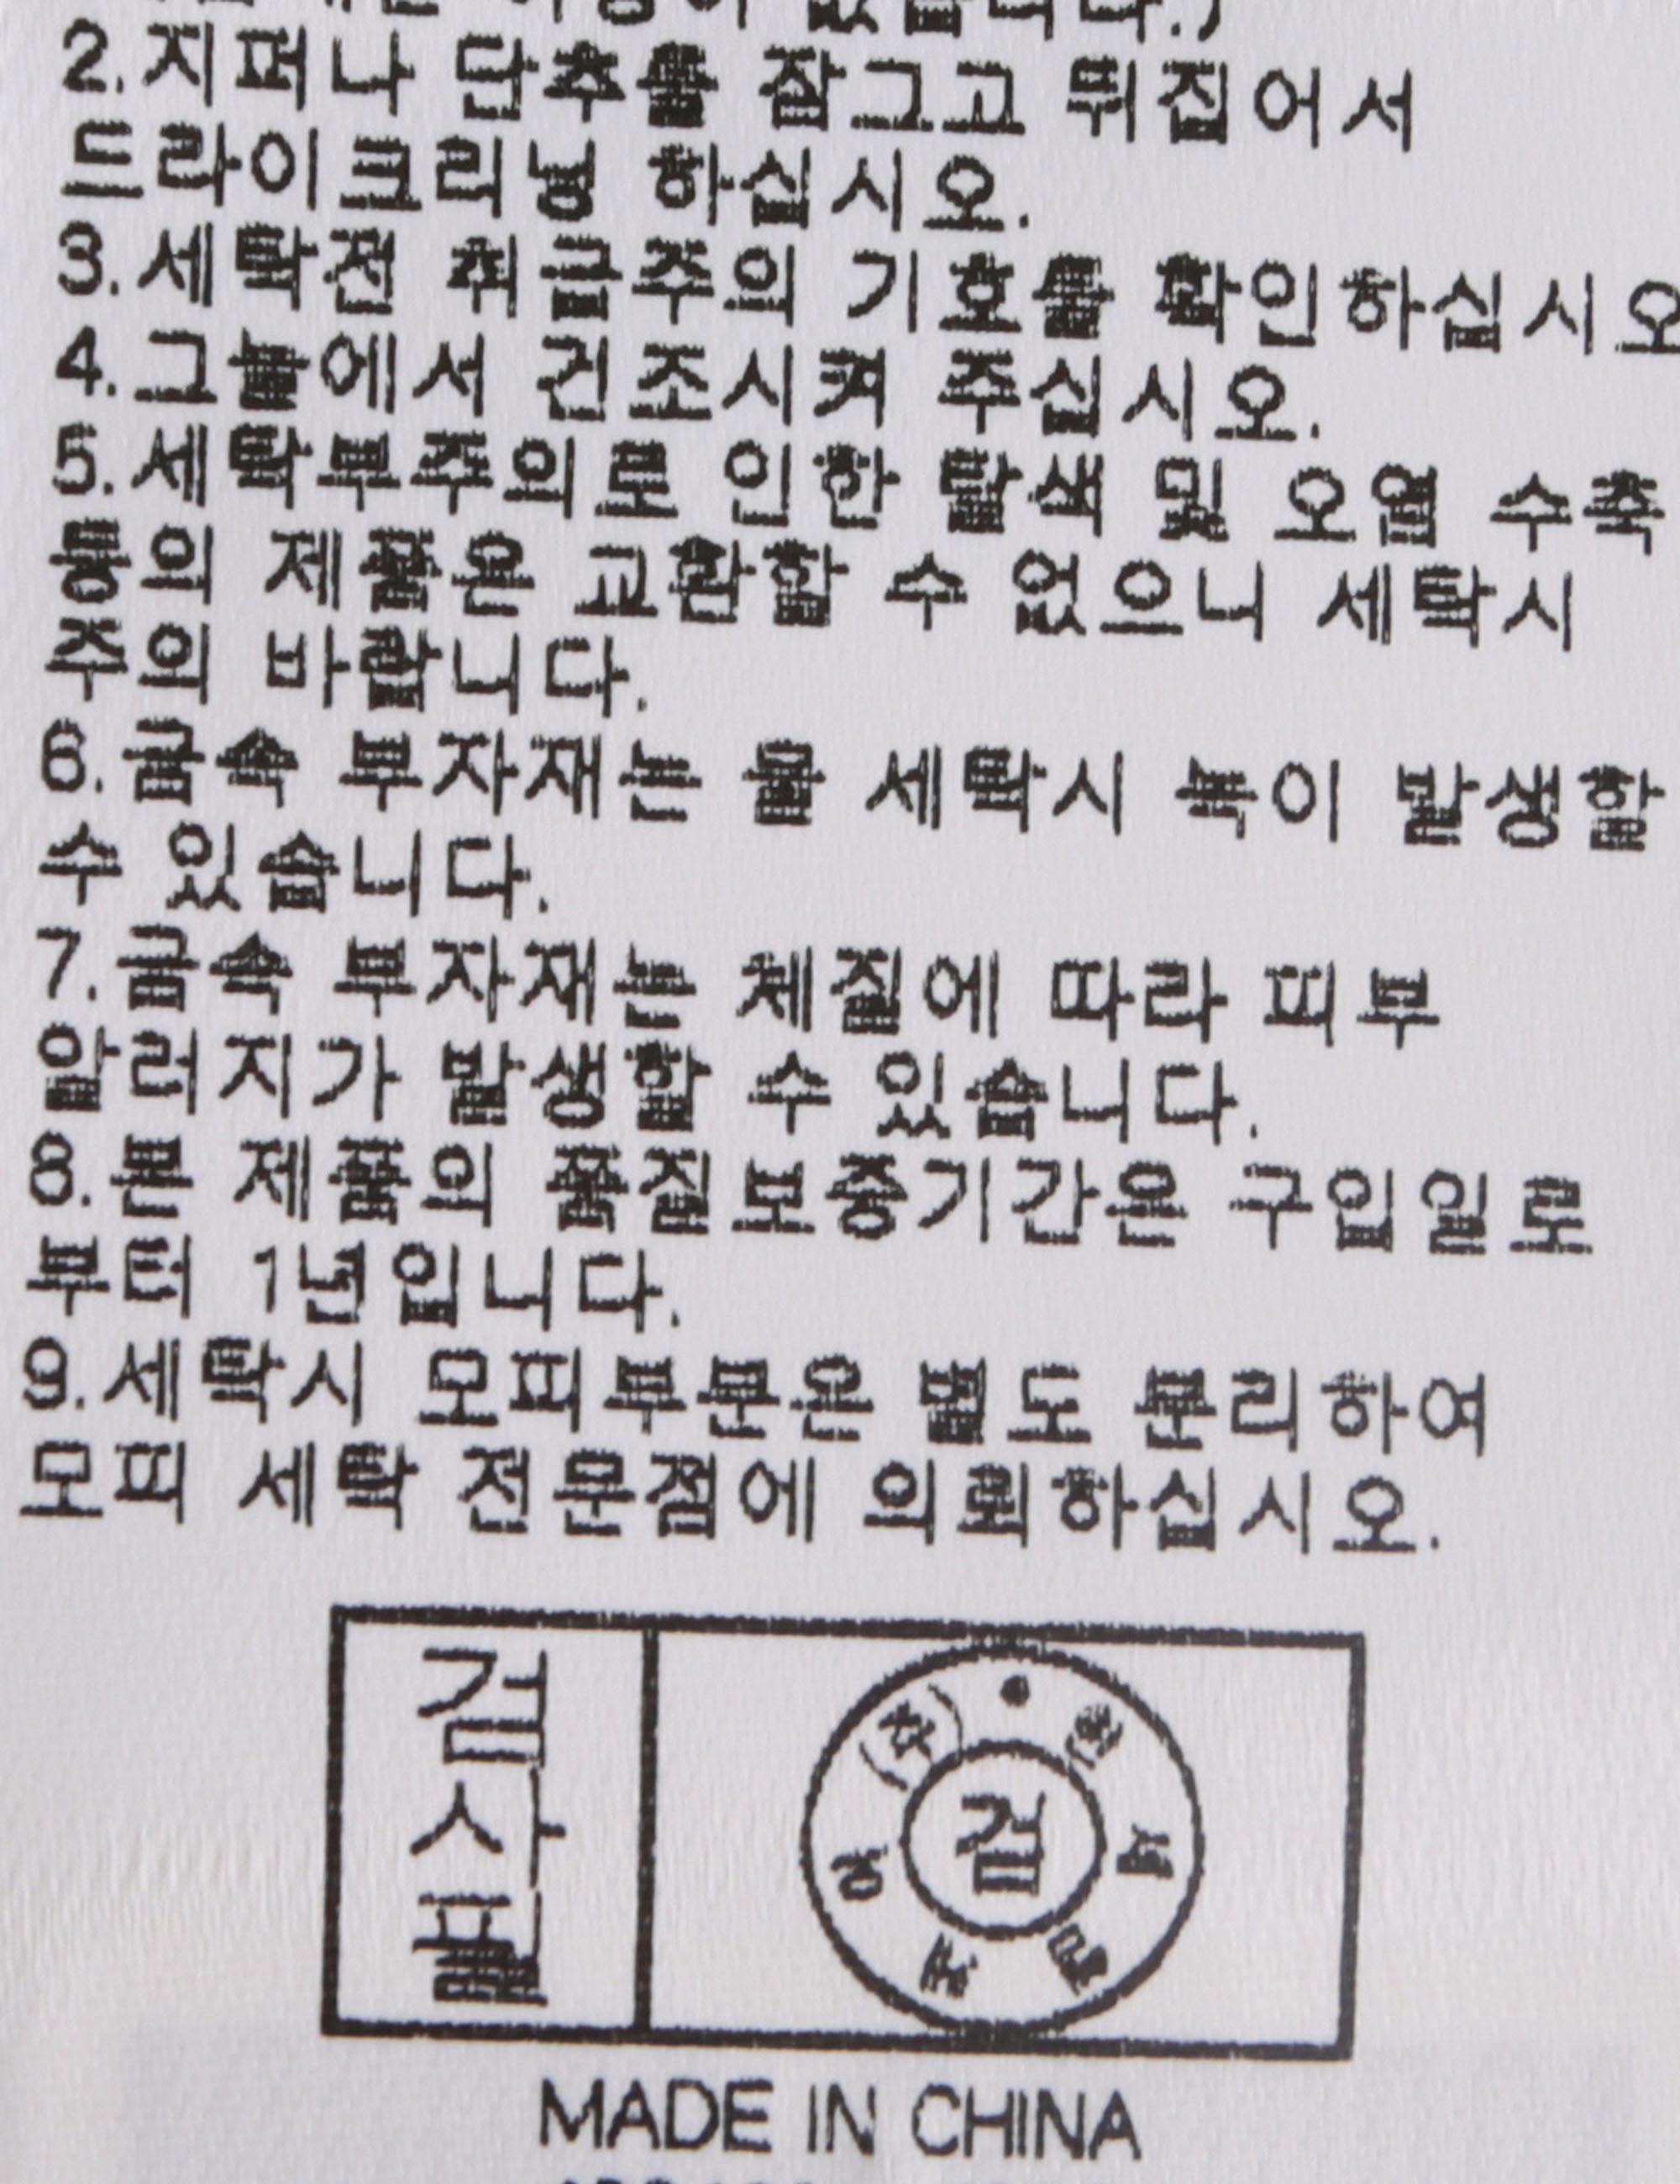 2.지퍼나 단추를 잠그고 뒤집어서
드라이크리닝 하십시오.
3.세탁전 취급주의 기호를 확인하십시오
4.그늘에서 건조시켜 주십시오.
5.세탁부주의로 인한 탈색 및 오염 수축
등의 제품은 교환할 수 없으니 세탁시
주의 바랍니다.
6.금속 부자재는 물 세탁시 녹이 발생할
수 있습니다.
7.금속 부자재는 체질에 따라 피부
알러지가 발생할 수 있습니다.
8.본 제품의 품질보증기간은 구입일로
부터 1년입니다.
9.세탁시 모피부분은 별도 분리하여
모피 세탁 전문점에 의뢰하십시오.
검사필
(주)
검
MADE IN CHINA